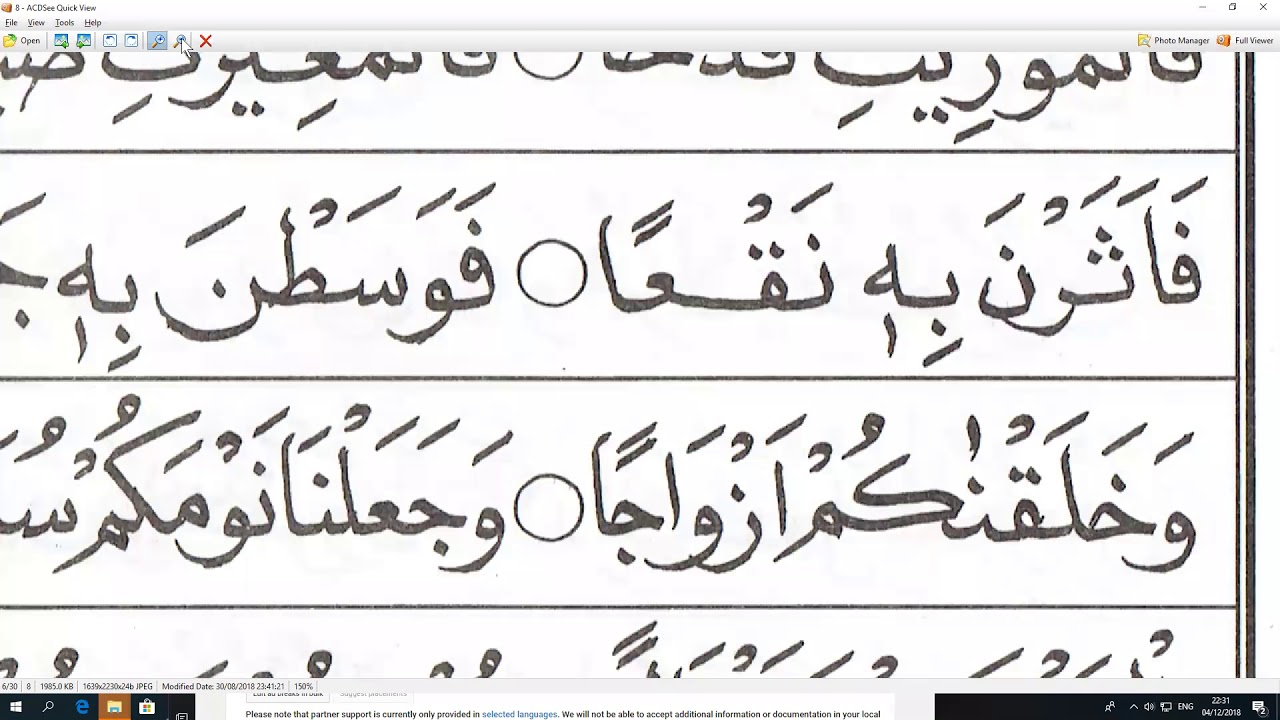 8 - ACDSee Quick View
File View Tools Help
Open Photo Manager Full Viewer
فَاَثَرْنَ بِهٖ نَقْعًا ○ فَوَسَطْنَ بِهٖ
وَخَلَقْنٰكُمْ اَزْوَاجًا ○ وَجَعَلْنَا نَوْمَكُمْ
6/30 8 1985.0 KB 1639x2230x24b JPEG Modified Date: 30/08/2018 23:41:21 150%
Edit ad breaks in bulk Suggest placements
Please note that partner support is currently only provided in selected languages. We will not be able to accept additional information or documentation in your local
ENG 22:31
04/12/2018 2